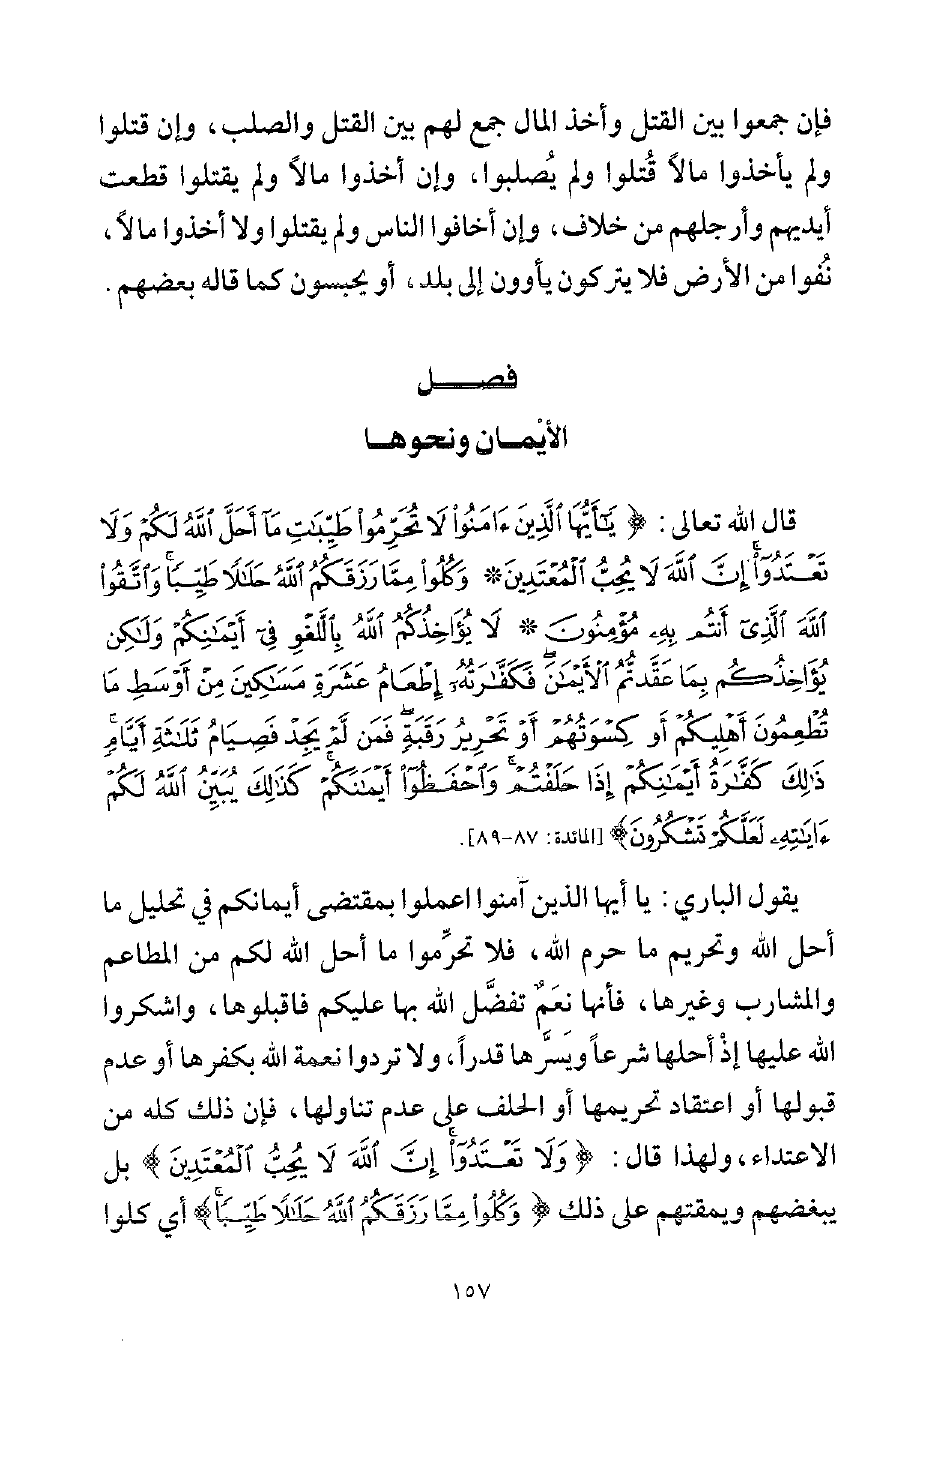 فإن جمعوا بين القتل وأخذ المال جمع لهم بين القتل والصلب، وإن قتلوا
ولم يأخذوا مالاً قُتلوا ولم يُصلبوا، وإن أخذوا مالاً ولم يقتلوا قطعت
أيديهم وأرجلهم من خلاف، وإن أخافوا الناس ولم يقتلوا ولا أخذوا مالاً،
نُفوا من الأرض فلا يتركون يأوون إلى بلد، أو يحبسون كما قاله بعضهم.
فصـــــل
الأيْمـان ونحوهـا
قال الله تعالى: ﴿يَٰٓأَيُّهَا ٱلَّذِينَ ءَامَنُوا۟ لَا تُحَرِّمُوا۟ طَيِّبَٰتِ مَآ أَحَلَّ ٱللَّهُ لَكُمْ وَلَا
تَعْتَدُوٓا۟ۚ إِنَّ ٱللَّهَ لَا يُحِبُّ ٱلْمُعْتَدِينَ* وَكُلُوا۟ مِمَّا رَزَقَكُمُ ٱللَّهُ حَلَٰلًا طَيِّبًاۚ وَٱتَّقُوا۟
ٱللَّهَ ٱلَّذِىٓ أَنتُم بِهِۦ مُؤْمِنُونَ * لَا يُؤَاخِذُكُمُ ٱللَّهُ بِٱللَّغْوِ فِىٓ أَيْمَٰنِكُمْ وَلَٰكِن
يُؤَاخِذُكُم بِمَا عَقَّدتُّمُ ٱلْأَيْمَٰنَۖ فَكَفَّٰرَتُهُۥٓ إِطْعَامُ عَشَرَةِ مَسَٰكِينَ مِنْ أَوْسَطِ مَا
تُطْعِمُونَ أَهْلِيكُمْ أَوْ كِسْوَتُهُمْ أَوْ تَحْرِيرُ رَقَبَةٍۖ فَمَن لَّمْ يَجِدْ فَصِيَامُ ثَلَٰثَةِ أَيَّامٍۚ
ذَٰلِكَ كَفَّٰرَةُ أَيْمَٰنِكُمْ إِذَا حَلَفْتُمْۚ وَٱحْفَظُوٓا۟ أَيْمَٰنَكُمْۚ كَذَٰلِكَ يُبَيِّنُ ٱللَّهُ لَكُمْ
ءَايَٰتِهِۦ لَعَلَّكُمْ تَشْكُرُونَ﴾ [المائدة: ٨٧-٨٩].
يقول الباري: يا أيها الذين آمنوا اعملوا بمقتضى أيمانكم في تحليل ما
أحل الله وتحريم ما حرم الله، فلا تحرِّموا ما أحل الله لكم من المطاعم
والمشارب وغيرها، فأنها نعَمٌ تفضَّل الله بها عليكم فاقبلوها، واشكروا
الله عليها إذْ أحلها شرعاً ويَسَّرها قدراً، ولا تردوا نعمة الله بكفرها أو عدم
قبولها أو اعتقاد تحريمها أو الحلف على عدم تناولها، فإن ذلك كله من
الاعتداء، ولهذا قال: ﴿وَلَا تَعْتَدُوٓا۟ۚ إِنَّ ٱللَّهَ لَا يُحِبُّ ٱلْمُعْتَدِينَ﴾ بل
يبغضهم ويمقتهم على ذلك ﴿وَكُلُوا۟ مِمَّا رَزَقَكُمُ ٱللَّهُ حَلَٰلًا طَيِّبًاۚ﴾ أي كلوا
١٥٧